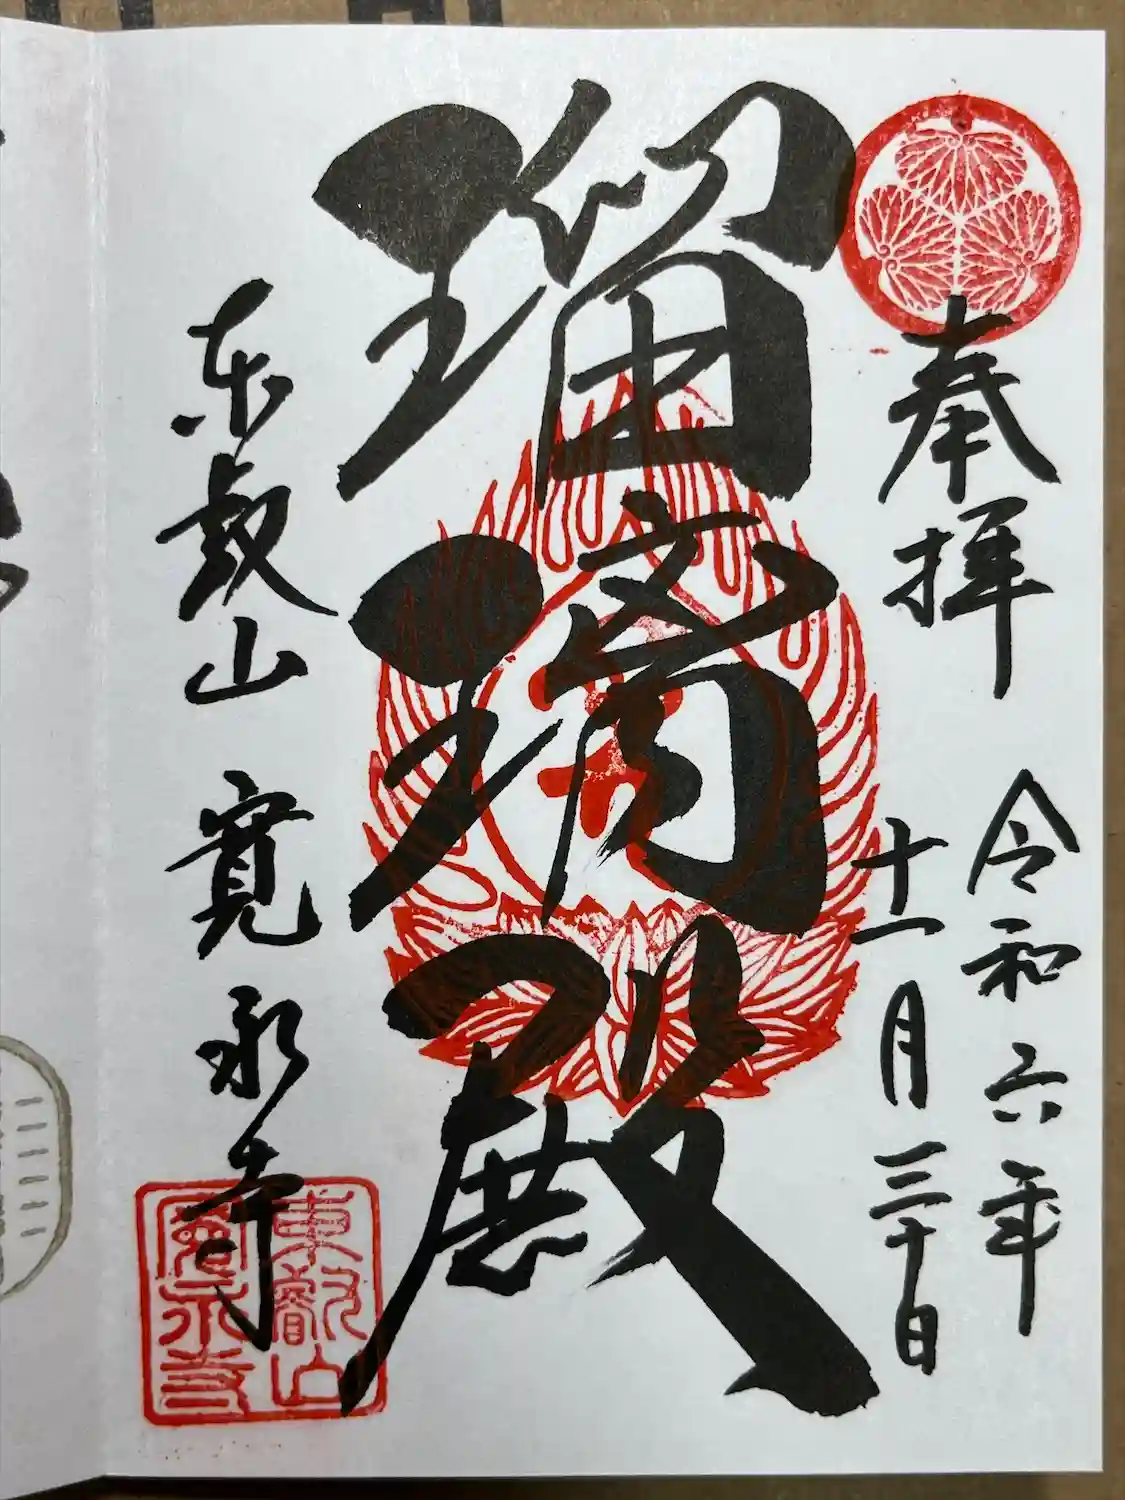 奉拝
令和六年
十一月三十日
瑠璃殿
東叡山 寛永寺
東叡山
寛永寺